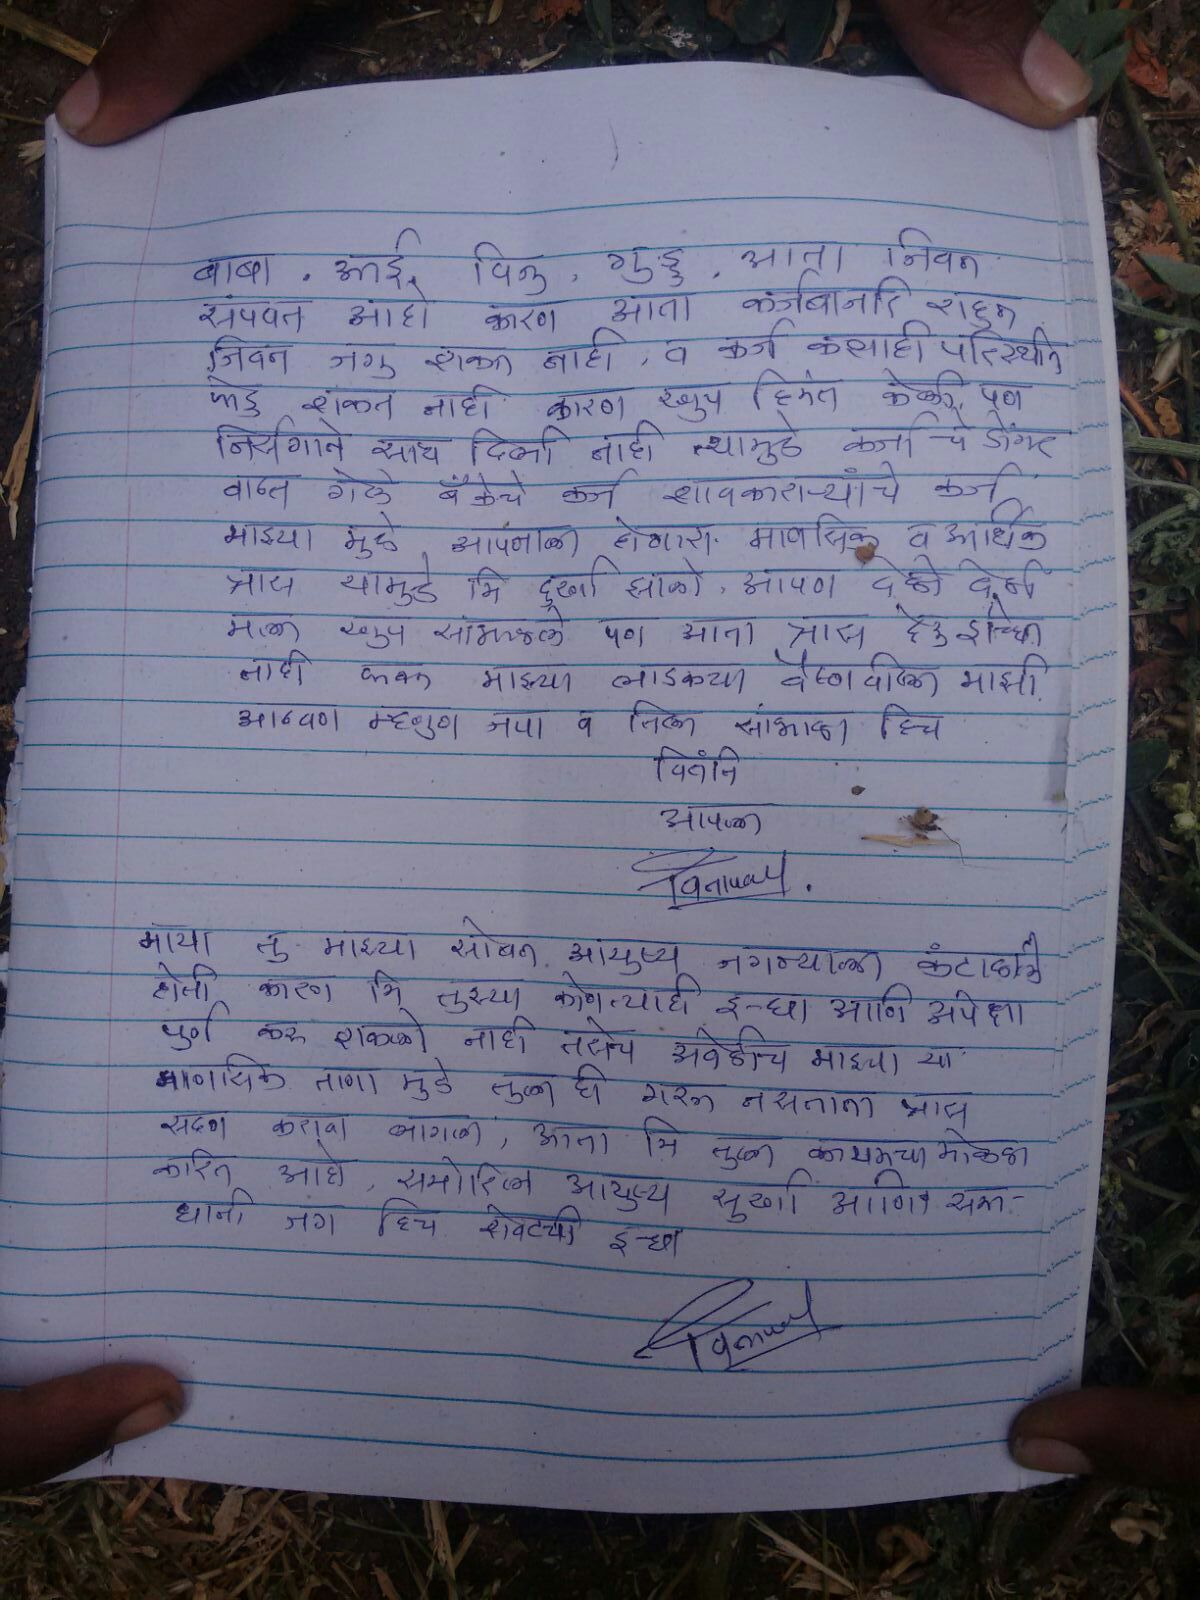 बाबा. आई, विनु, गुड्डु, आता जिवन
संपवत आहो कारण आता कर्जबाजारी राहुन
जिवन जगु शकत नाही, व कर्ज कसाही परिस्थीत
फेडु शकत नाही कारण खुप हिमंत केली, पण
निर्सगाने साथ दिली नाही त्यामुडे कर्जाचे डोंगर
वाढत गेले बँकेचे कर्ज सावकाराऱ्यांचे कर्ज
माझ्या मुडे, आपनाला होणारा मानसिक व आर्थिक
त्रास यामुडे मि दुखी झालो, आपण वेळो वेळी
मला खुप सांभाळले पण आता त्रास देवु इच्छित
नाही फक्त माझ्या लाडक्या वैष्णवीला माझी
आठवण म्हणुण जपा व तिला सांभाळा हिच
विनंति
आपला
विनायक.
माया तु माझ्या सोबत आयुष्य जगन्याला कंटाळली
होती कारण मि तुझ्या कोणत्याही इच्छा आणि अपेक्षा
पुर्ण करु शकलो नाही तसेच अवेळीच माझ्या या
मानसिक ताणा मुडे तुला ही गरज नसताना त्रास
सहण करावा लागला, आता मि तुला कायमचा मोकळा
करित आहो, समोरिल आयुष्य सुखी आणि समा-
धानी जग हिच शेवटची इच्छा
विनायक